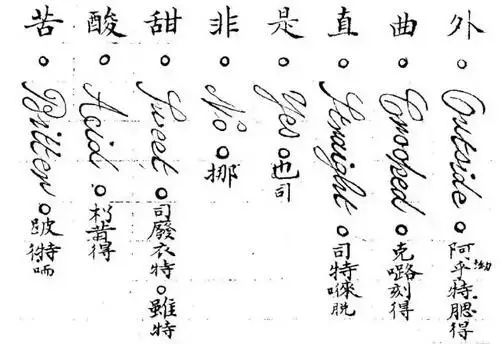 外 ○ Outside ○ 阿乎特腮得
曲 ○ Crooped ○ 克刻得
直 ○ Straight ○ 司特唻脱
是 ○ Yes ○ 也司
非 ○ No ○ 挪
甜 ○ Sweet ○ 司廢衣特 ○ 雖特
酸 ○ Acid ○ 昔得
苦 ○ Bitter ○ 特